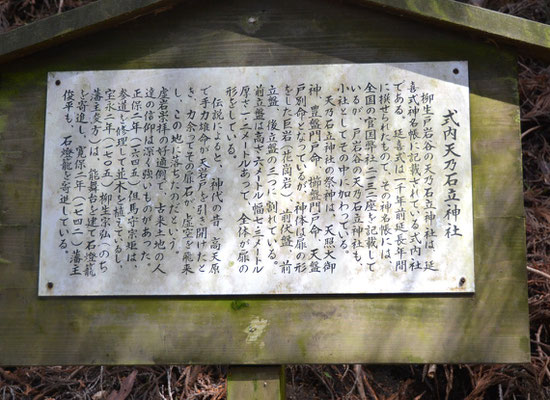 式内天乃石立神社
柳生戸岩谷の天乃石立神社は、延
喜式神名帳に記載されている式内社
である。延喜式は一千年前延長年間
に撰せられたもので、その神名帳には、
全国の官国弊社二一三二座を記載して
いるが、戸岩谷の天乃石立神社も、
小社としてその中に加わっている。
天乃石立神社の祭神は、天照大御
神、豊盤門戸命、櫛盤門戸命、天盤
戸別命となっているが、神体は扉の形
をした巨岩(花崗岩)、前伏盤、前
立盤、後立盤の三つに割れている。
前立盤は高さ六メートル幅七・三メートル
厚さ一・二メートルあって、全体が扉の
形をしている。
伝説によると、神代の昔、高天原
で手力雄命が天岩戸を引き開けたと
き、力余ってその扉石が、虚空を飛来
し、この地に落ちたのだという。
虚岩崇拝の好適例で、古来土地の人
達の信仰は深く強いものがあった。
正保二年(一六四五)但馬守宗矩は
参道を修理して並木を植えているし、
宝永二年(一七〇五)柳生宗弘(のち
藩主俊方)は、能舞台を建て石燈籠
を寄進し、寛保二年(一七四二)藩主
俊平も、石燈籠を寄進している。